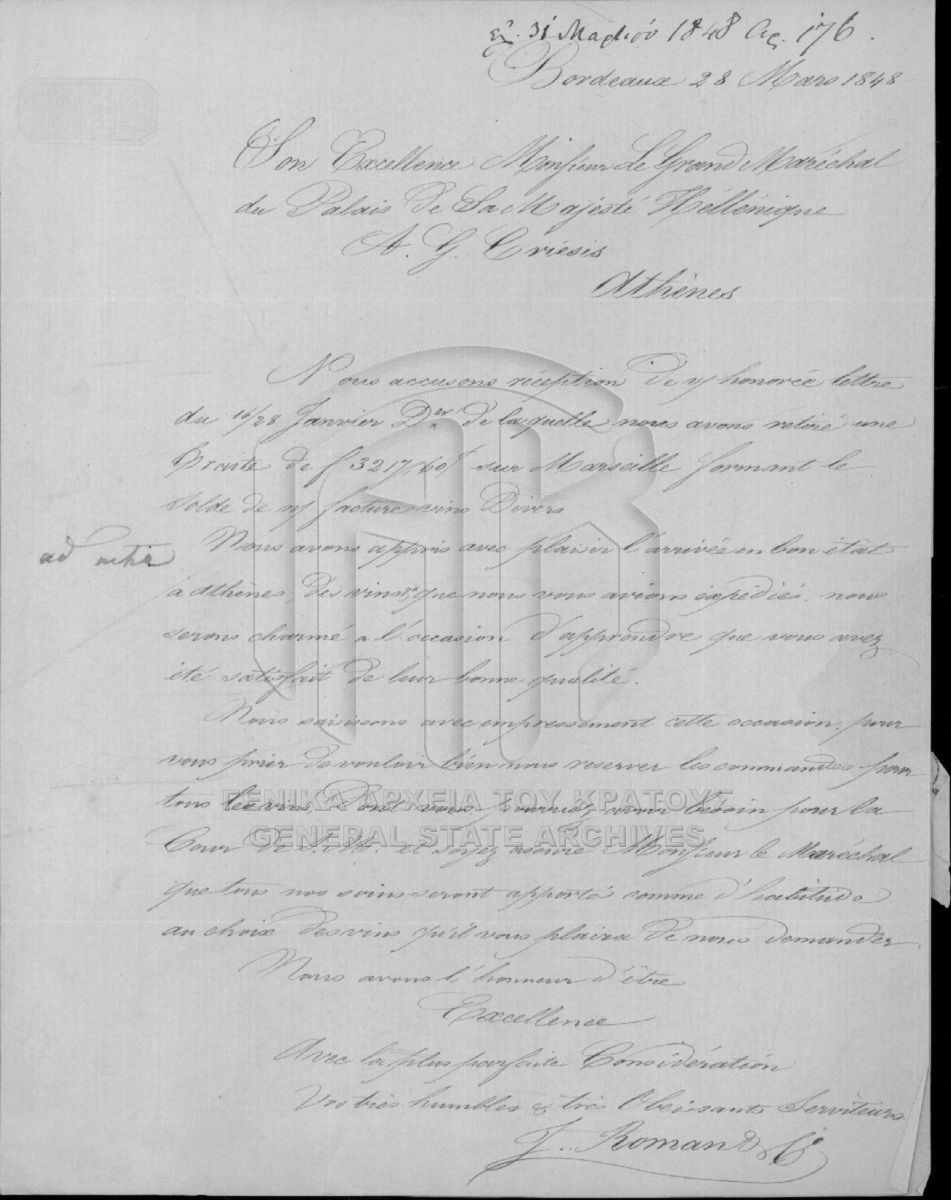 31 Μαρτίου 1848 Αρ. 176.
Bordeaux 28 Mars 1848
Son Excellence Monsieur Le Grand Maréchal
du Palais de Sa Majesté Hellénique
A. G. Criésis
Athènes
Nous accusons réception de v/ honorée lettre
du 16/28 Janvier Der de laquelle nous avons retiré une
Traite de f 3217 60 sur Marseille formant le
solde de n/ facture vins Divers
ad acta
Nous avons appris avec plaisir l'arrivée en bon état
à Athènes, des vins que nous vous avions expédiés. nous
serons charmé a l'occasion d'apprendre que vous avez
été satisfait de leur bonne qualité.
Nous saisissons avec empressement cette occasion pour
vous prier de vouloir bien nous reserver les commandes pour
tous les vins dont vous pourriez avoir besoin pour la
ΓΕΝΙΚΑ ΑΡΧΕΙΑ ΤΟΥ ΚΡΑΤΟΥΣ
GENERAL STATE ARCHIVES
Cour de S. M. et soyez assuré Monsieur le Maréchal
que tous nos soins seront apportés comme d'habitude
au choix des vins qu'il vous plaira de nous demander
Nous avons l'honneur d'être
Excellence
Avec la plus parfaite Considération
Vos très humbles & très Obeissants Serviteurs
J. Roman & Cie